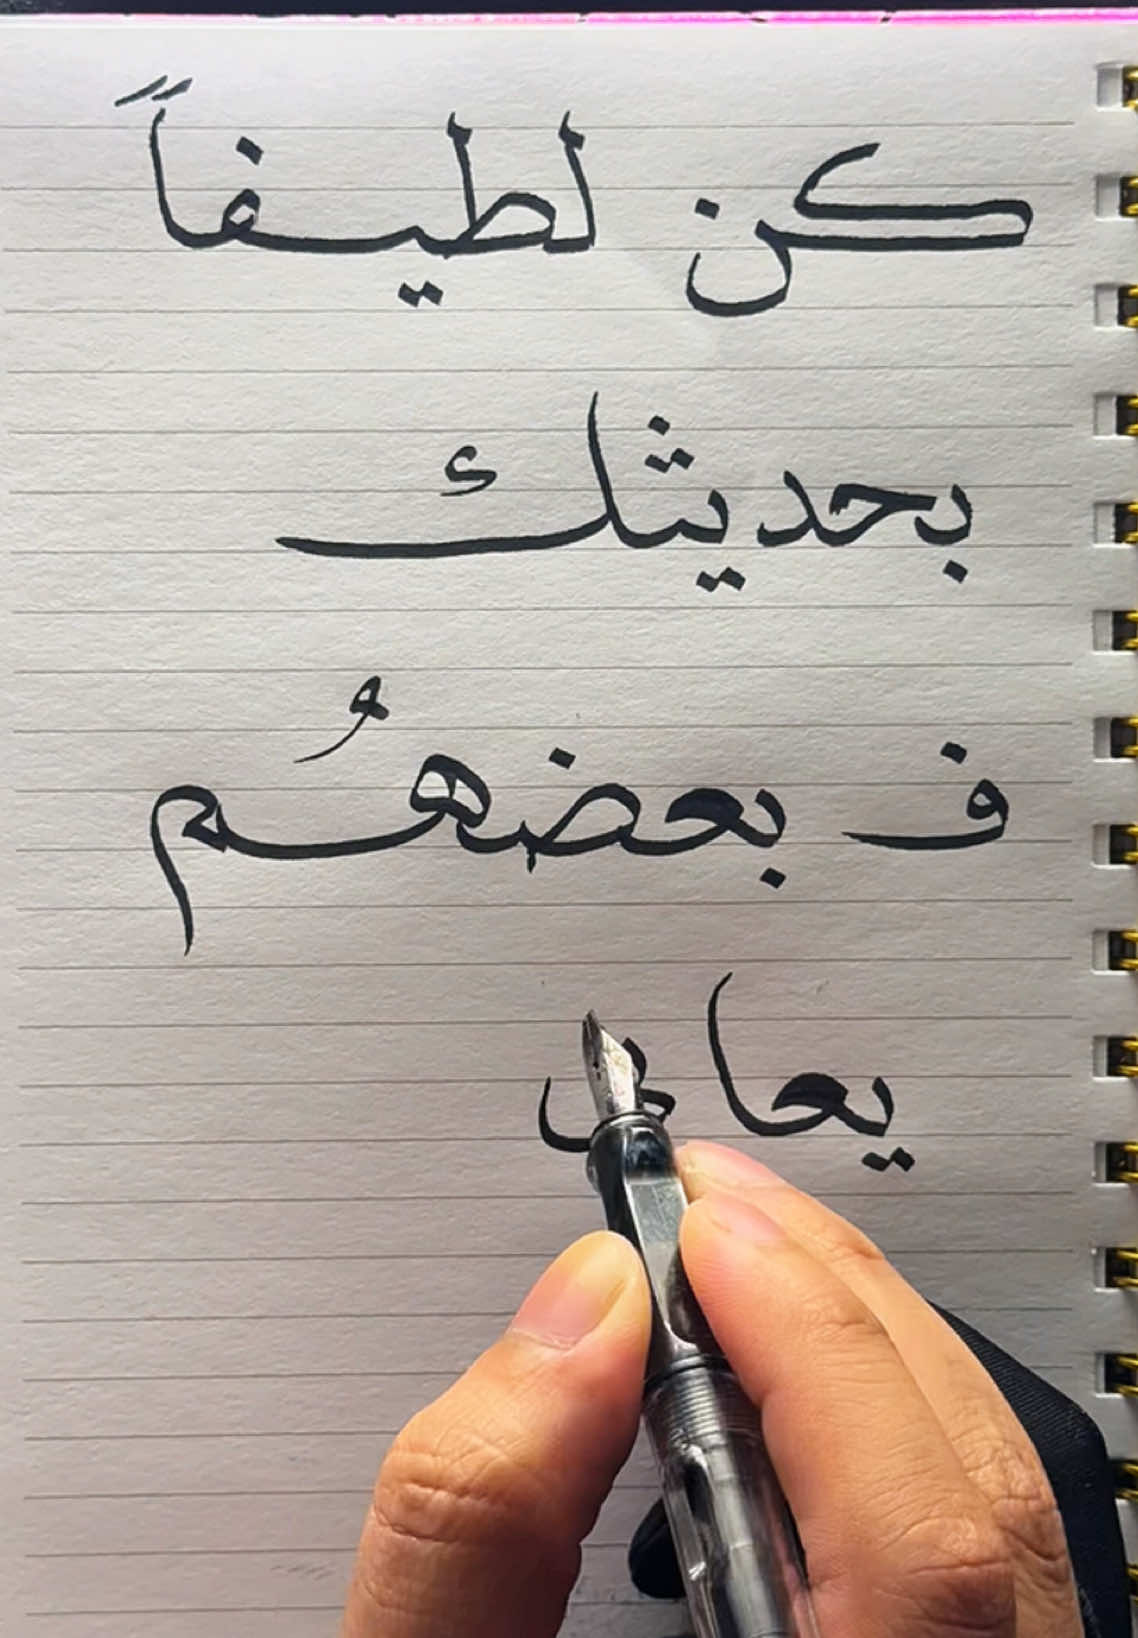 كن لطيفاً
بحديثك
ف بعضهُم